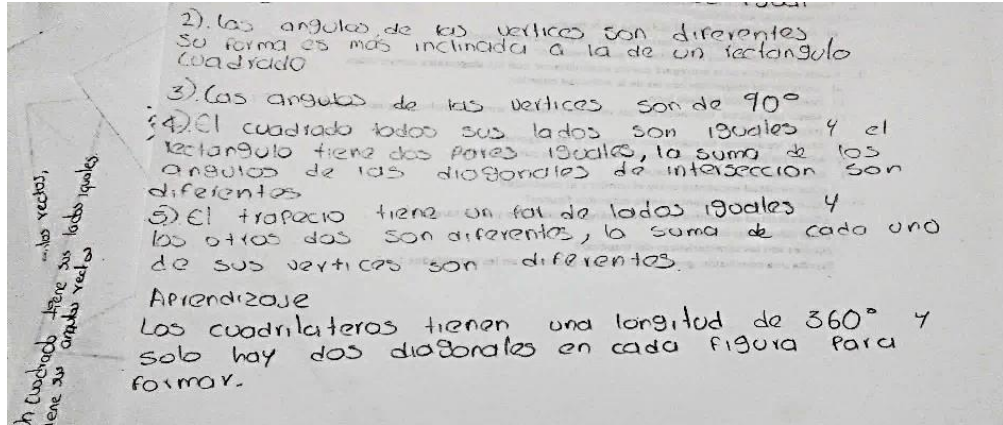 2). Los angulos de las vertices son diferentes,
su forma es mas inclinada a la de un rectangulo
cuadrado
3). Las angulos de las vertices son de 90°
4). El cuadrado todos sus lados son iguales y el
rectangulo tiene dos pares iguales, la suma de los
angulos de las diagonales de interseccion son
diferentes
5) El trapecio tiene un par de lados iguales y
los otros dos son diferentes, la suma de cada uno
de sus vertices son diferentes.
Aprendizaje
Los cuadrilateros tienen una longitud de 360° y
solo hay dos diagonales en cada figura para
formar.
rectos,
cuadrado tiene sus lados iguales
angulos rectos